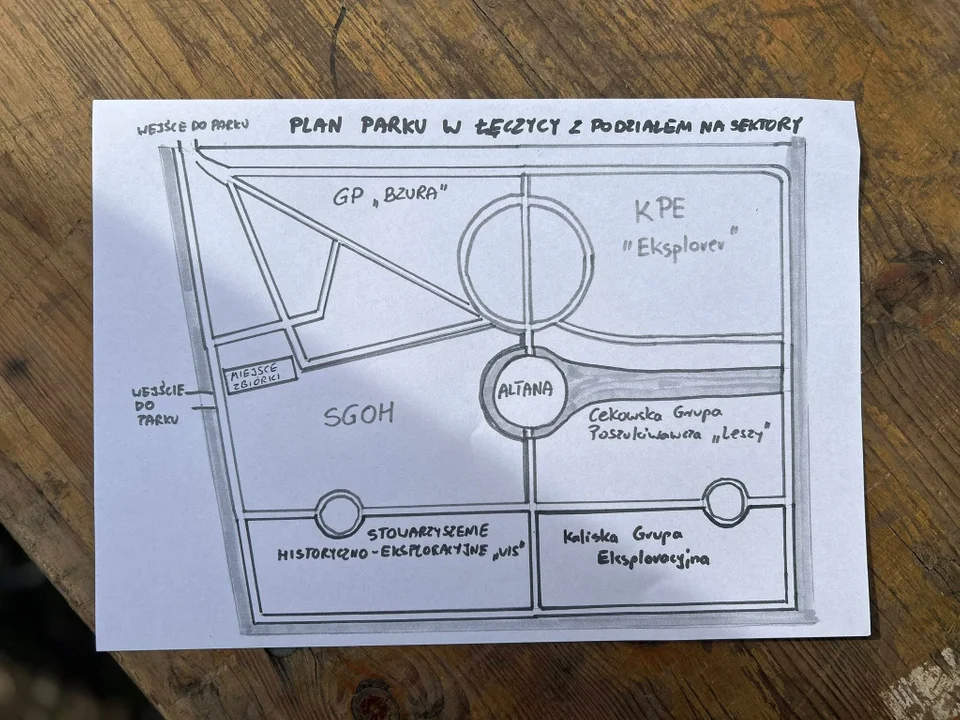 WEJŚCE DO PARKU
PLAN PARKU W ŁĘCZYCY Z PODZIAŁEM NA SEKTORY
GP „BZURA"
KPE
"Eksplorer"
MIEJSCE
ZBIÓRKI
WEJŚCIE
DO
PARKU
ALTANA
SGOH
Cekowska Grupa
Poszukiwawcza „Leszy"
STOWARZYSZENIE
HISTORYCZNO-EKSPLORACYJNE „VIS"
Kaliska Grupa
Eksploracyjna